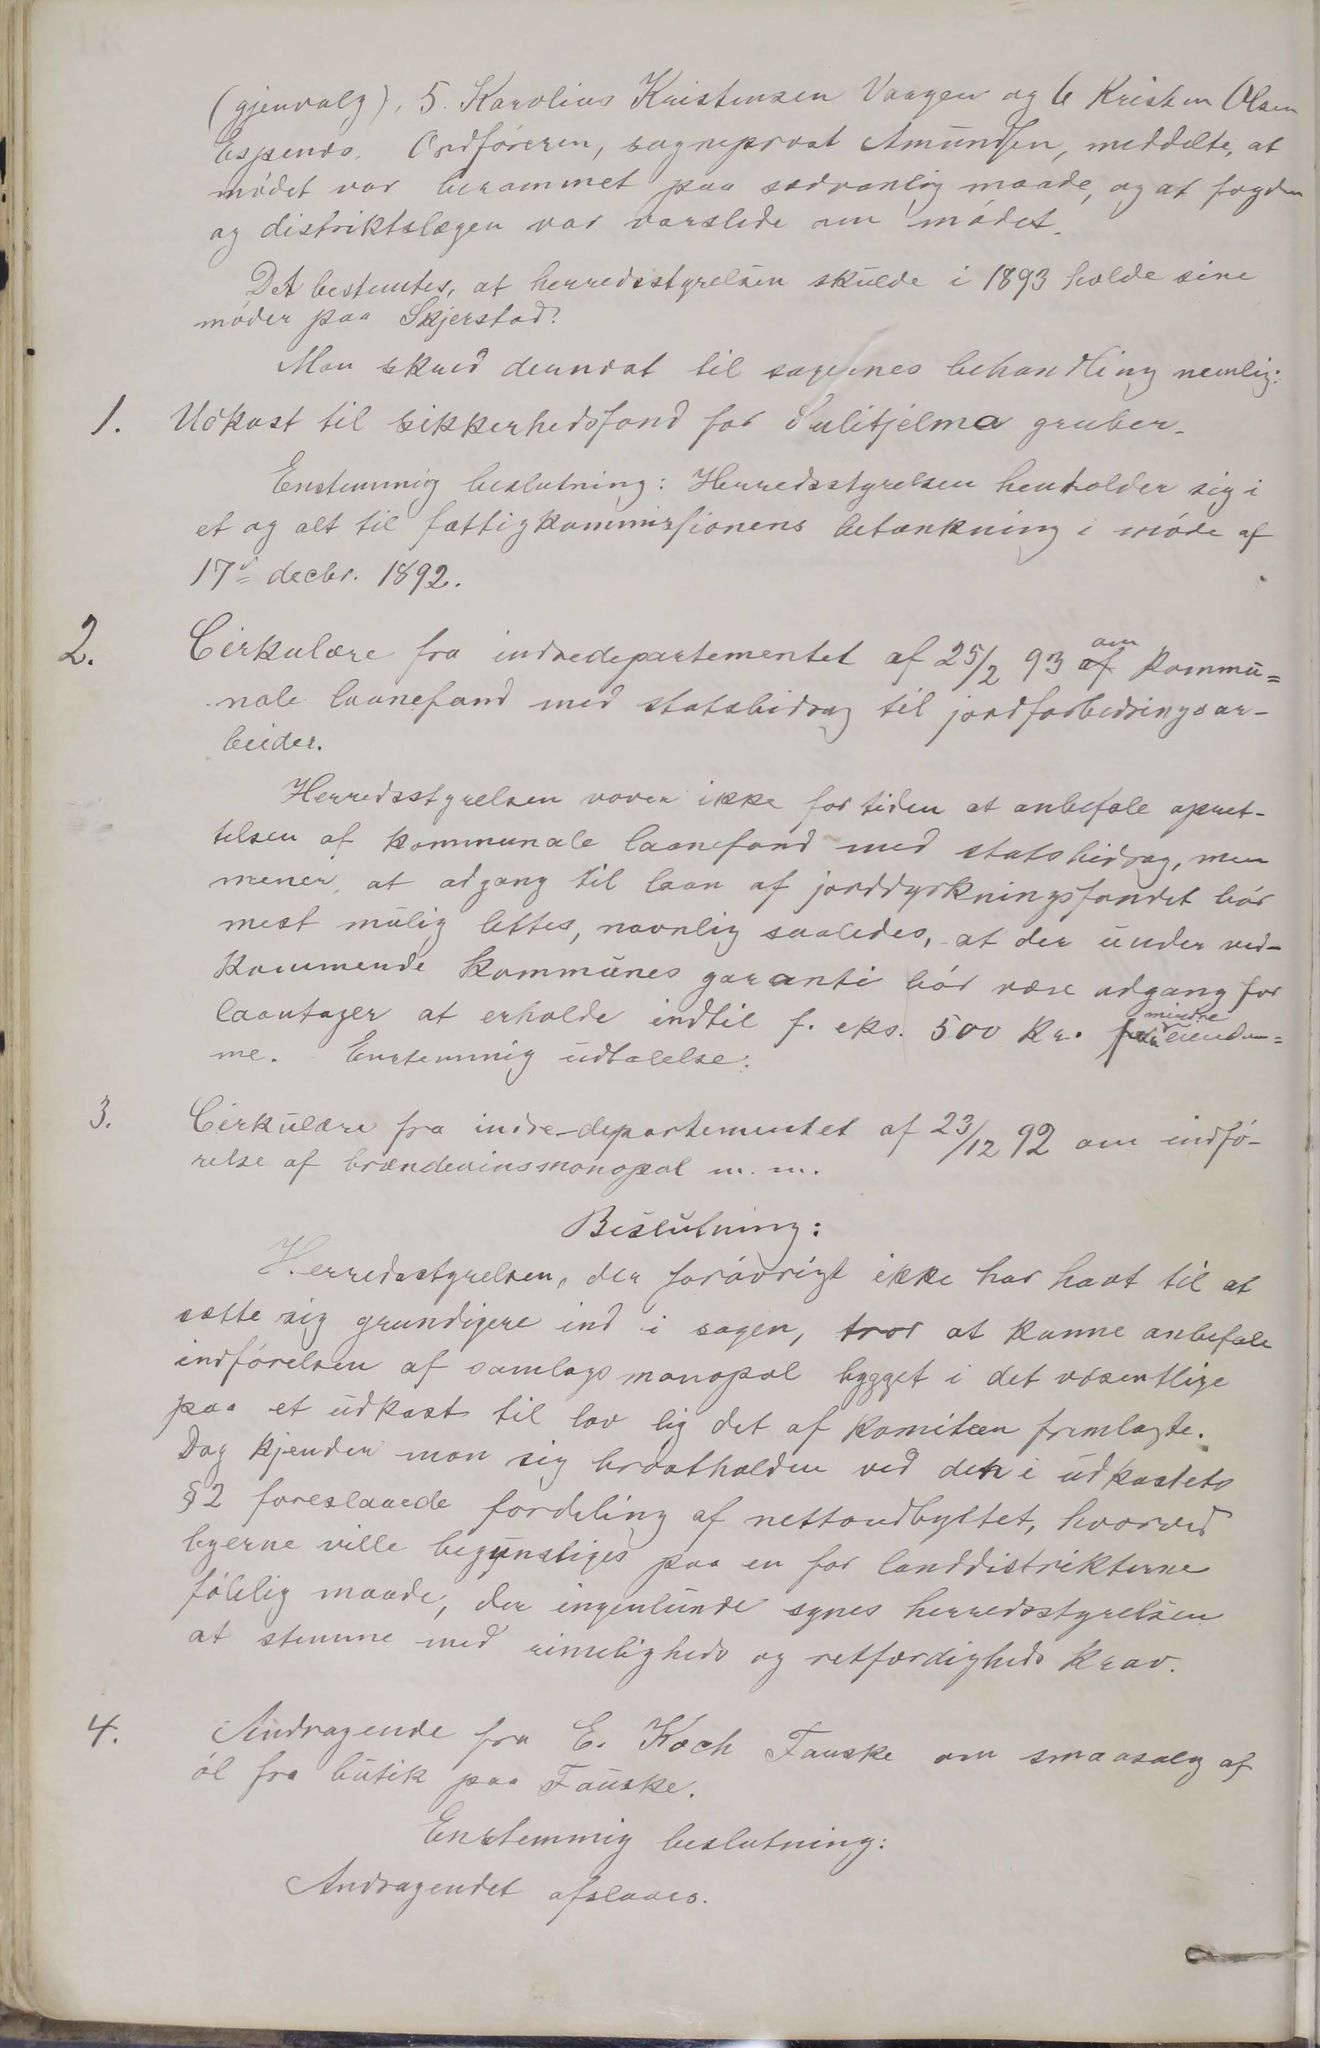 (gjenvalg), 5. Karolius Kristensen Vaagen og 6 Kristen Olsen
Espenes. Ordføreren, sogneprest Amundsen, meddelte, at
mødet var berammet paa sædvanlig maade, og at fogden
og distriktslægen var varslede om mødet.
Det bestemtes, at herredsstyrelsen skulde i 1893 holde sine
møder paa Skjerstad.
Man skred derunat til sagernes behandling nemlig:
1. Udkast til sikkerhedsfond for Sulitjelma gruber.
Enstemmig beslutning: Herredsstyrelsen henholder sig i
et og alt til fattigkommissionens betænkning i møde af
17de decbr. 1892.
2. Cirkulære fra indredepartementet af 25/2 93 af om kommu=
nale laanefond med statsbidrag til jordforbedringsar-
beider.
Herredsstyrelsen vover ikke for tiden at anbefale opret-
telsen af kommunale laanefond med statsbidrag, men
mener, at adgang til laan af jorddyrkningsfondet bør
mest mulig lettes, navnlig saaledes, at der under ved-
kommende kommunes garanti bør være adgang for
laantager at erholde indtil f. eks. 500 kr. paa mindre eiendom=
me. Enstemmig udtalelse.
3. Cirkulære fra indre-departementet af 23/12 92 om indfø-
relse af brændevinsmonopol m. m.
Beslutning:
Herredsstyrelsen, der forøvrigt ikke har havt til at
sætte sig grundigere ind i sagen, tror at kunne anbefale
indførelsen af samlagsmonopol bygget i det væsentlige
paa et udkast til lov lig det af komiteen fremlagte.
Dog kjender man sig brøstholden ved den i udkastets
§ 2 foreslaaede fordeling af nettoudbyttet, hvorved
byerne ville begunstiges paa en for landdistrikterne
følelig maade, der ingenlunde synes herredsstyrelsen
at stemme med rimeligheds og retfærdigheds krav.
4. Andragende fra E. Koch Fauske om smaasalg af
øl fra butik paa Fauske.
Enstemmig beslutning:
Andragendet afslaaes.